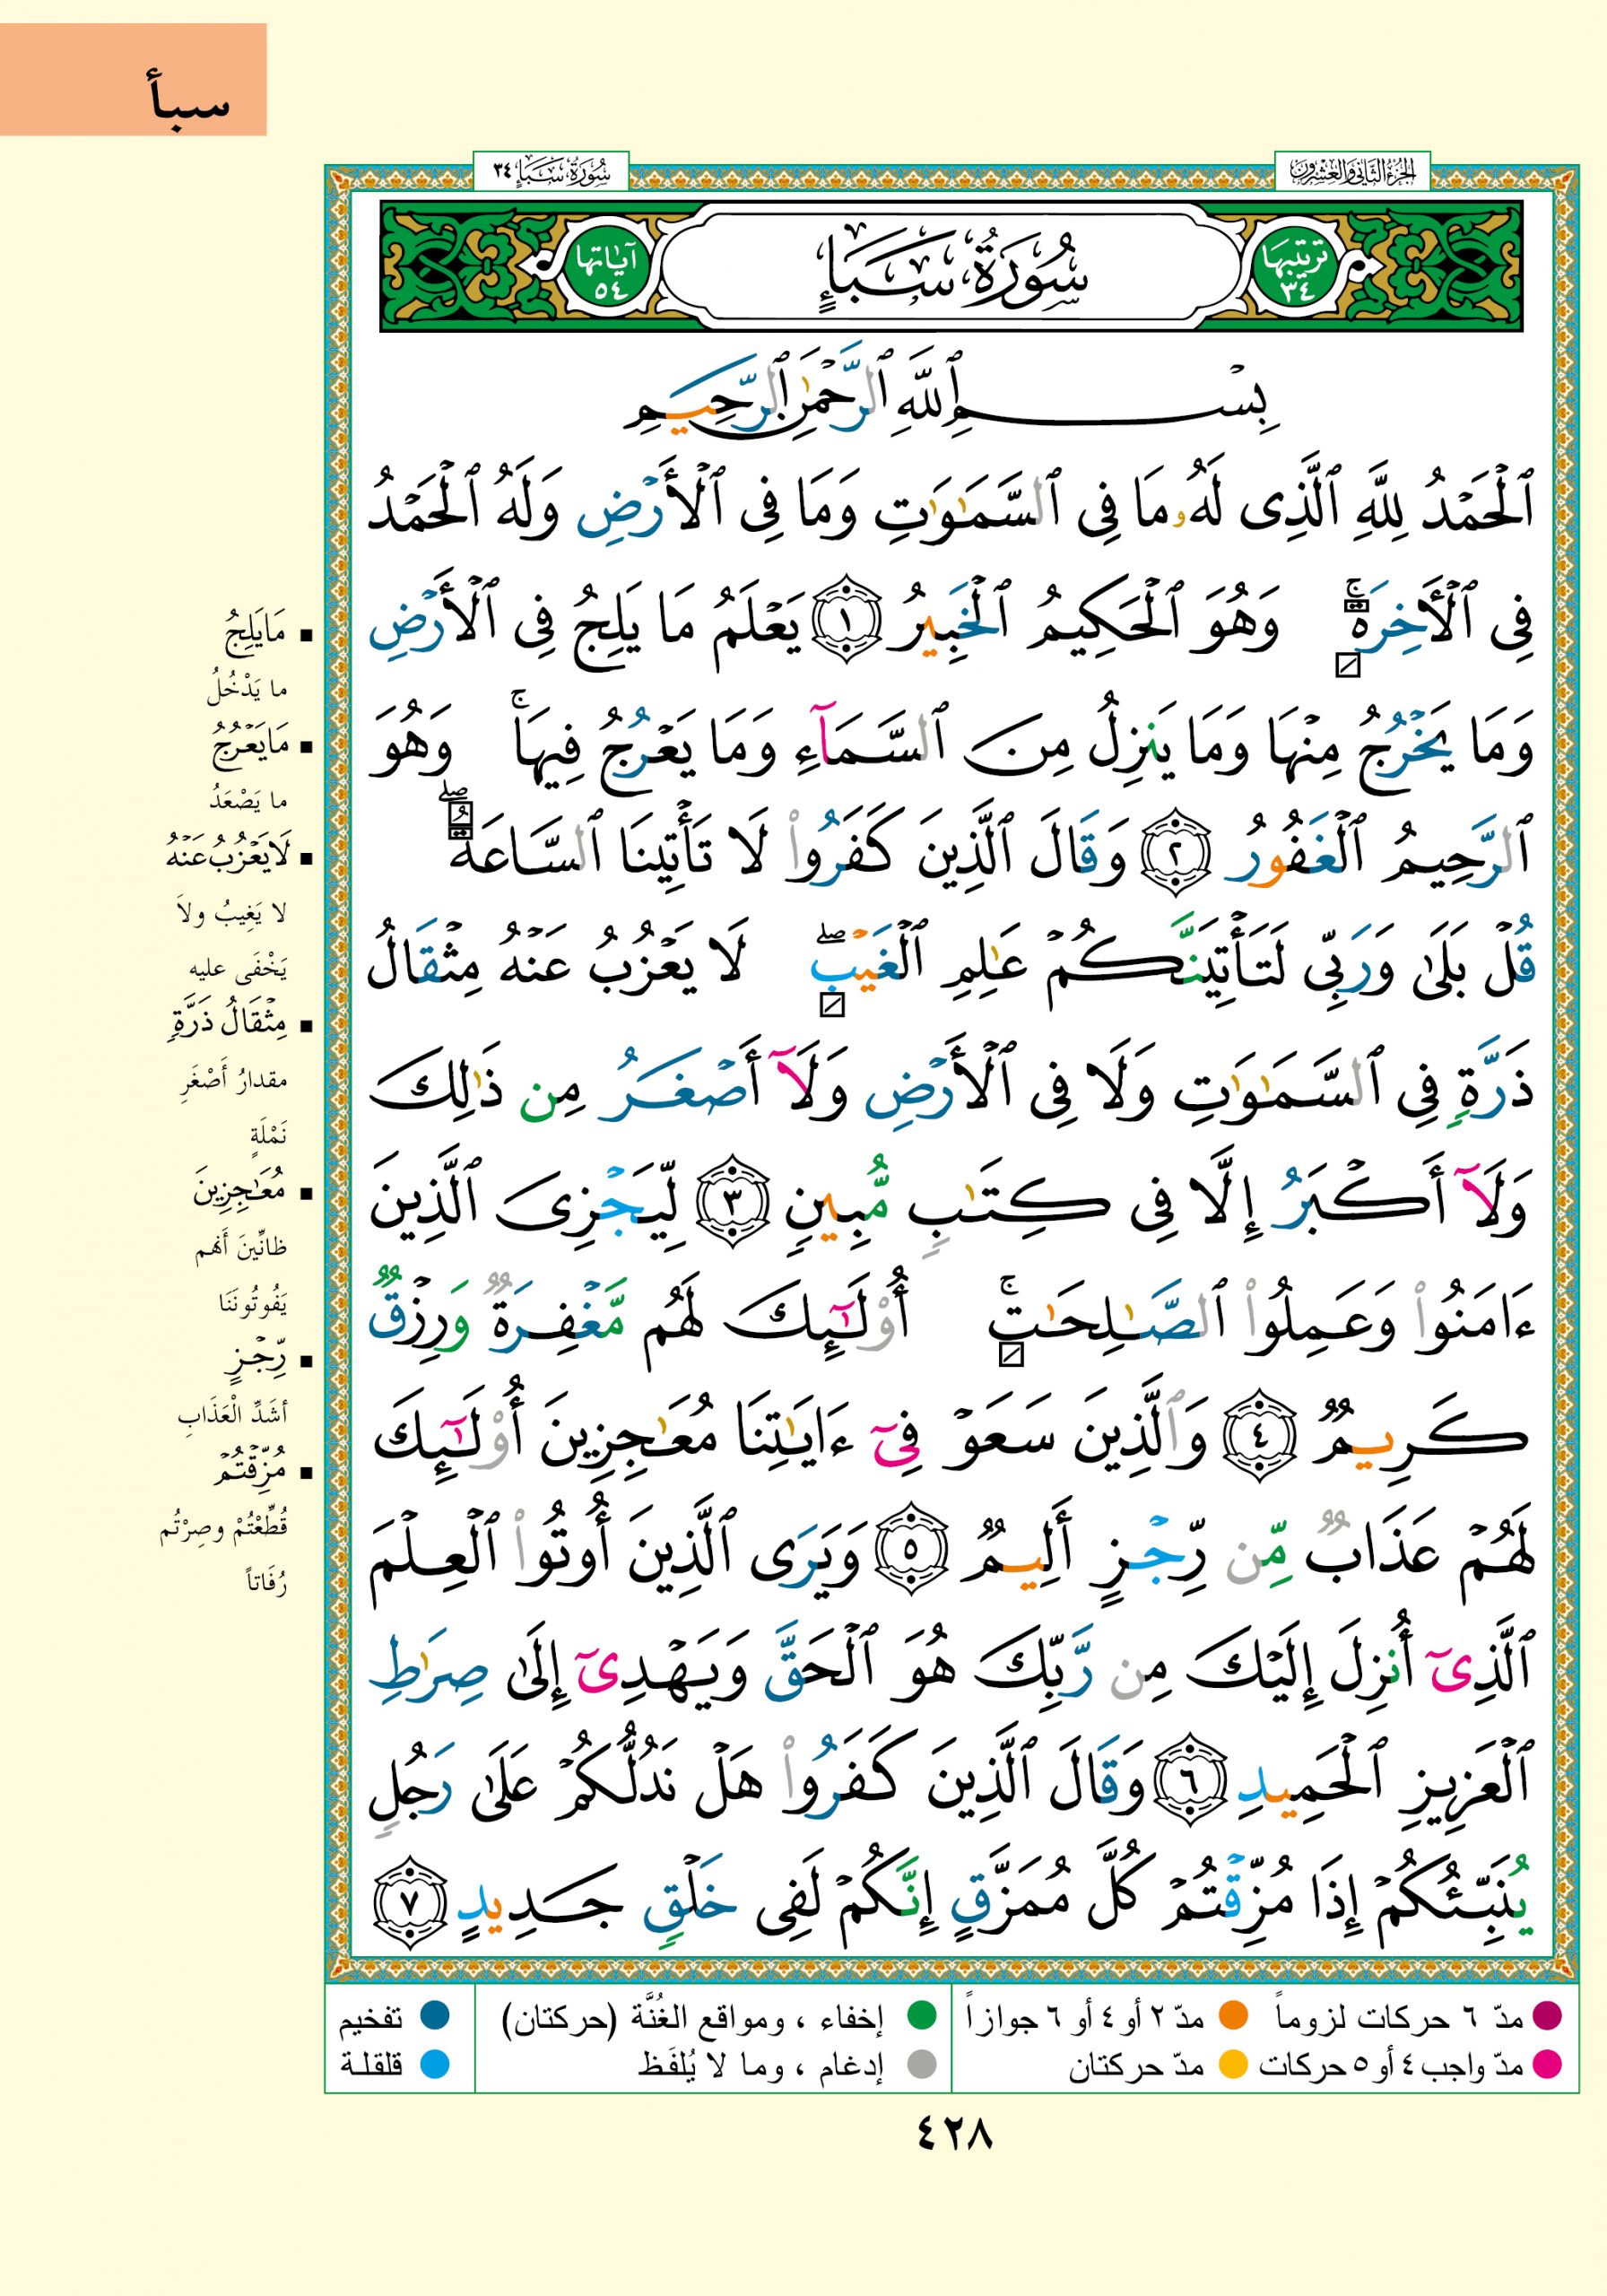 سبأ
الجزء الثاني والعشرون
سُورَةُ سَبَإٍ ٣٤
ترتيبها ٣٤
سُورَةُ سَبَإٍ
آياتها ٥٤
بِسْمِ ٱللَّهِ ٱلرَّحْمَٰنِ ٱلرَّحِيمِ
ٱلْحَمْدُ لِلَّهِ ٱلَّذِى لَهُۥ مَا فِى ٱلسَّمَٰوَٰتِ وَمَا فِى ٱلْأَرْضِ وَلَهُ ٱلْحَمْدُ
فِى ٱلْأَخِرَةِ ۚ وَهُوَ ٱلْحَكِيمُ ٱلْخَبِيرُ ١ يَعْلَمُ مَا يَلِجُ فِى ٱلْأَرْضِ
وَمَا يَخْرُجُ مِنْهَا وَمَا يَنزِلُ مِنَ ٱلسَّمَآءِ وَمَا يَعْرُجُ فِيهَا ۚ وَهُوَ
ٱلرَّحِيمُ ٱلْغَفُورُ ٢ وَقَالَ ٱلَّذِينَ كَفَرُوا۟ لَا تَأْتِينَا ٱلسَّاعَةُ ۖ
قُلْ بَلَىٰ وَرَبِّى لَتَأْتِيَنَّكُمْ عَٰلِمِ ٱلْغَيْبِ ۖ لَا يَعْزُبُ عَنْهُ مِثْقَالُ
ذَرَّةٍ فِى ٱلسَّمَٰوَٰتِ وَلَا فِى ٱلْأَرْضِ وَلَآ أَصْغَرُ مِن ذَٰلِكَ
وَلَآ أَكْبَرُ إِلَّا فِى كِتَٰبٍ مُّبِينٍ ٣ لِّيَجْزِىَ ٱلَّذِينَ
ءَامَنُوا۟ وَعَمِلُوا۟ ٱلصَّٰلِحَٰتِ ۚ أُو۟لَٰٓئِكَ لَهُم مَّغْفِرَةٌ وَرِزْقٌ
كَرِيمٌ ٤ وَٱلَّذِينَ سَعَوْ فِىٓ ءَايَٰتِنَا مُعَٰجِزِينَ أُو۟لَٰٓئِكَ
لَهُمْ عَذَابٌ مِّن رِّجْزٍ أَلِيمٌ ٥ وَيَرَى ٱلَّذِينَ أُوتُوا۟ ٱلْعِلْمَ
ٱلَّذِىٓ أُنزِلَ إِلَيْكَ مِن رَّبِّكَ هُوَ ٱلْحَقَّ وَيَهْدِىٓ إِلَىٰ صِرَٰطِ
ٱلْعَزِيزِ ٱلْحَمِيدِ ٦ وَقَالَ ٱلَّذِينَ كَفَرُوا۟ هَلْ نَدُلُّكُمْ عَلَىٰ رَجُلٍ
يُنَبِّئُكُمْ إِذَا مُزِّقْتُمْ كُلَّ مُمَزَّقٍ إِنَّكُمْ لَفِى خَلْقٍ جَدِيدٍ ٧
▪ مَا يَلِجُ
ما يَدْخُلُ
▪ مَا يَعْرُجُ
ما يَصْعَدُ
▪ لَا يَعْزُبُ عَنْهُ
لا يَغِيبُ ولاَ
يَخْفَى عليه
▪ مِثْقَالُ ذَرَّةٍ
مقدارُ أَصْغَرِ
نَمْلَةٍ
▪ مُعَٰجِزِينَ
ظانِّينَ أَنهم
يَفُوتُونَنَا
▪ رِّجْزٍ
أشَدِّ الْعَذَابِ
▪ مُزِّقْتُمْ
قُطِّعْتُمْ وصِرْتُم
رُفَاتاً
مدّ ٦ حركات لزوماً ● مدّ ٢ أو ٤ أو ٦ جوازاً
مدّ واجب ٤ أو ٥ حركات ● مدّ حركتان
إخفاء ، ومواقع الغُنَّة (حركتان)
إدغام ، وما لا يُلفَظ
تفخيم
قلقلة
٤٢٨